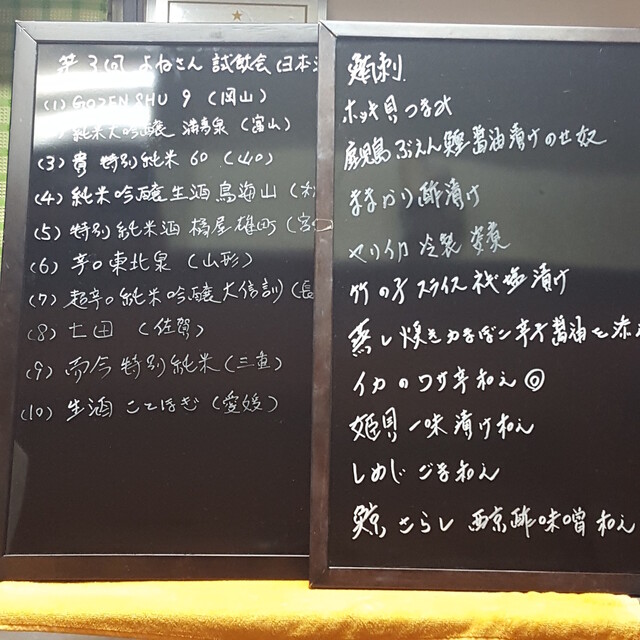 第3回 よねさん 試飲会 日本
(1) GOZENSHU 9 (岡山)
純米大吟醸 満寿泉 (富山)
(3) 貴 特別純米 60 (山口)
(4) 純米吟醸生酒鳥海山 (秋
(5) 特別純米酒 橘屋雄町 (宮
(6) 辛口東北泉 (山形)
(7) 超辛口純米吟醸大信州 (長
(8) 七田 (佐賀)
(9) 而今 特別純米 (三重)
(10) 生酒 ことほぎ (愛媛)
刺
ホッキ貝つま水
鹿児島 ぶえん鰹醤油漬けのせ奴
ままかり酢漬け
ヤリイカ 冷製
竹の子スライス 塩漬け
蒸し焼きかまぼこ辛子醤油を添え
イカのワサ辛和え◎
姫貝一味漬け和え
しめじごま和え
鯨さらし 西京酢味噌和え